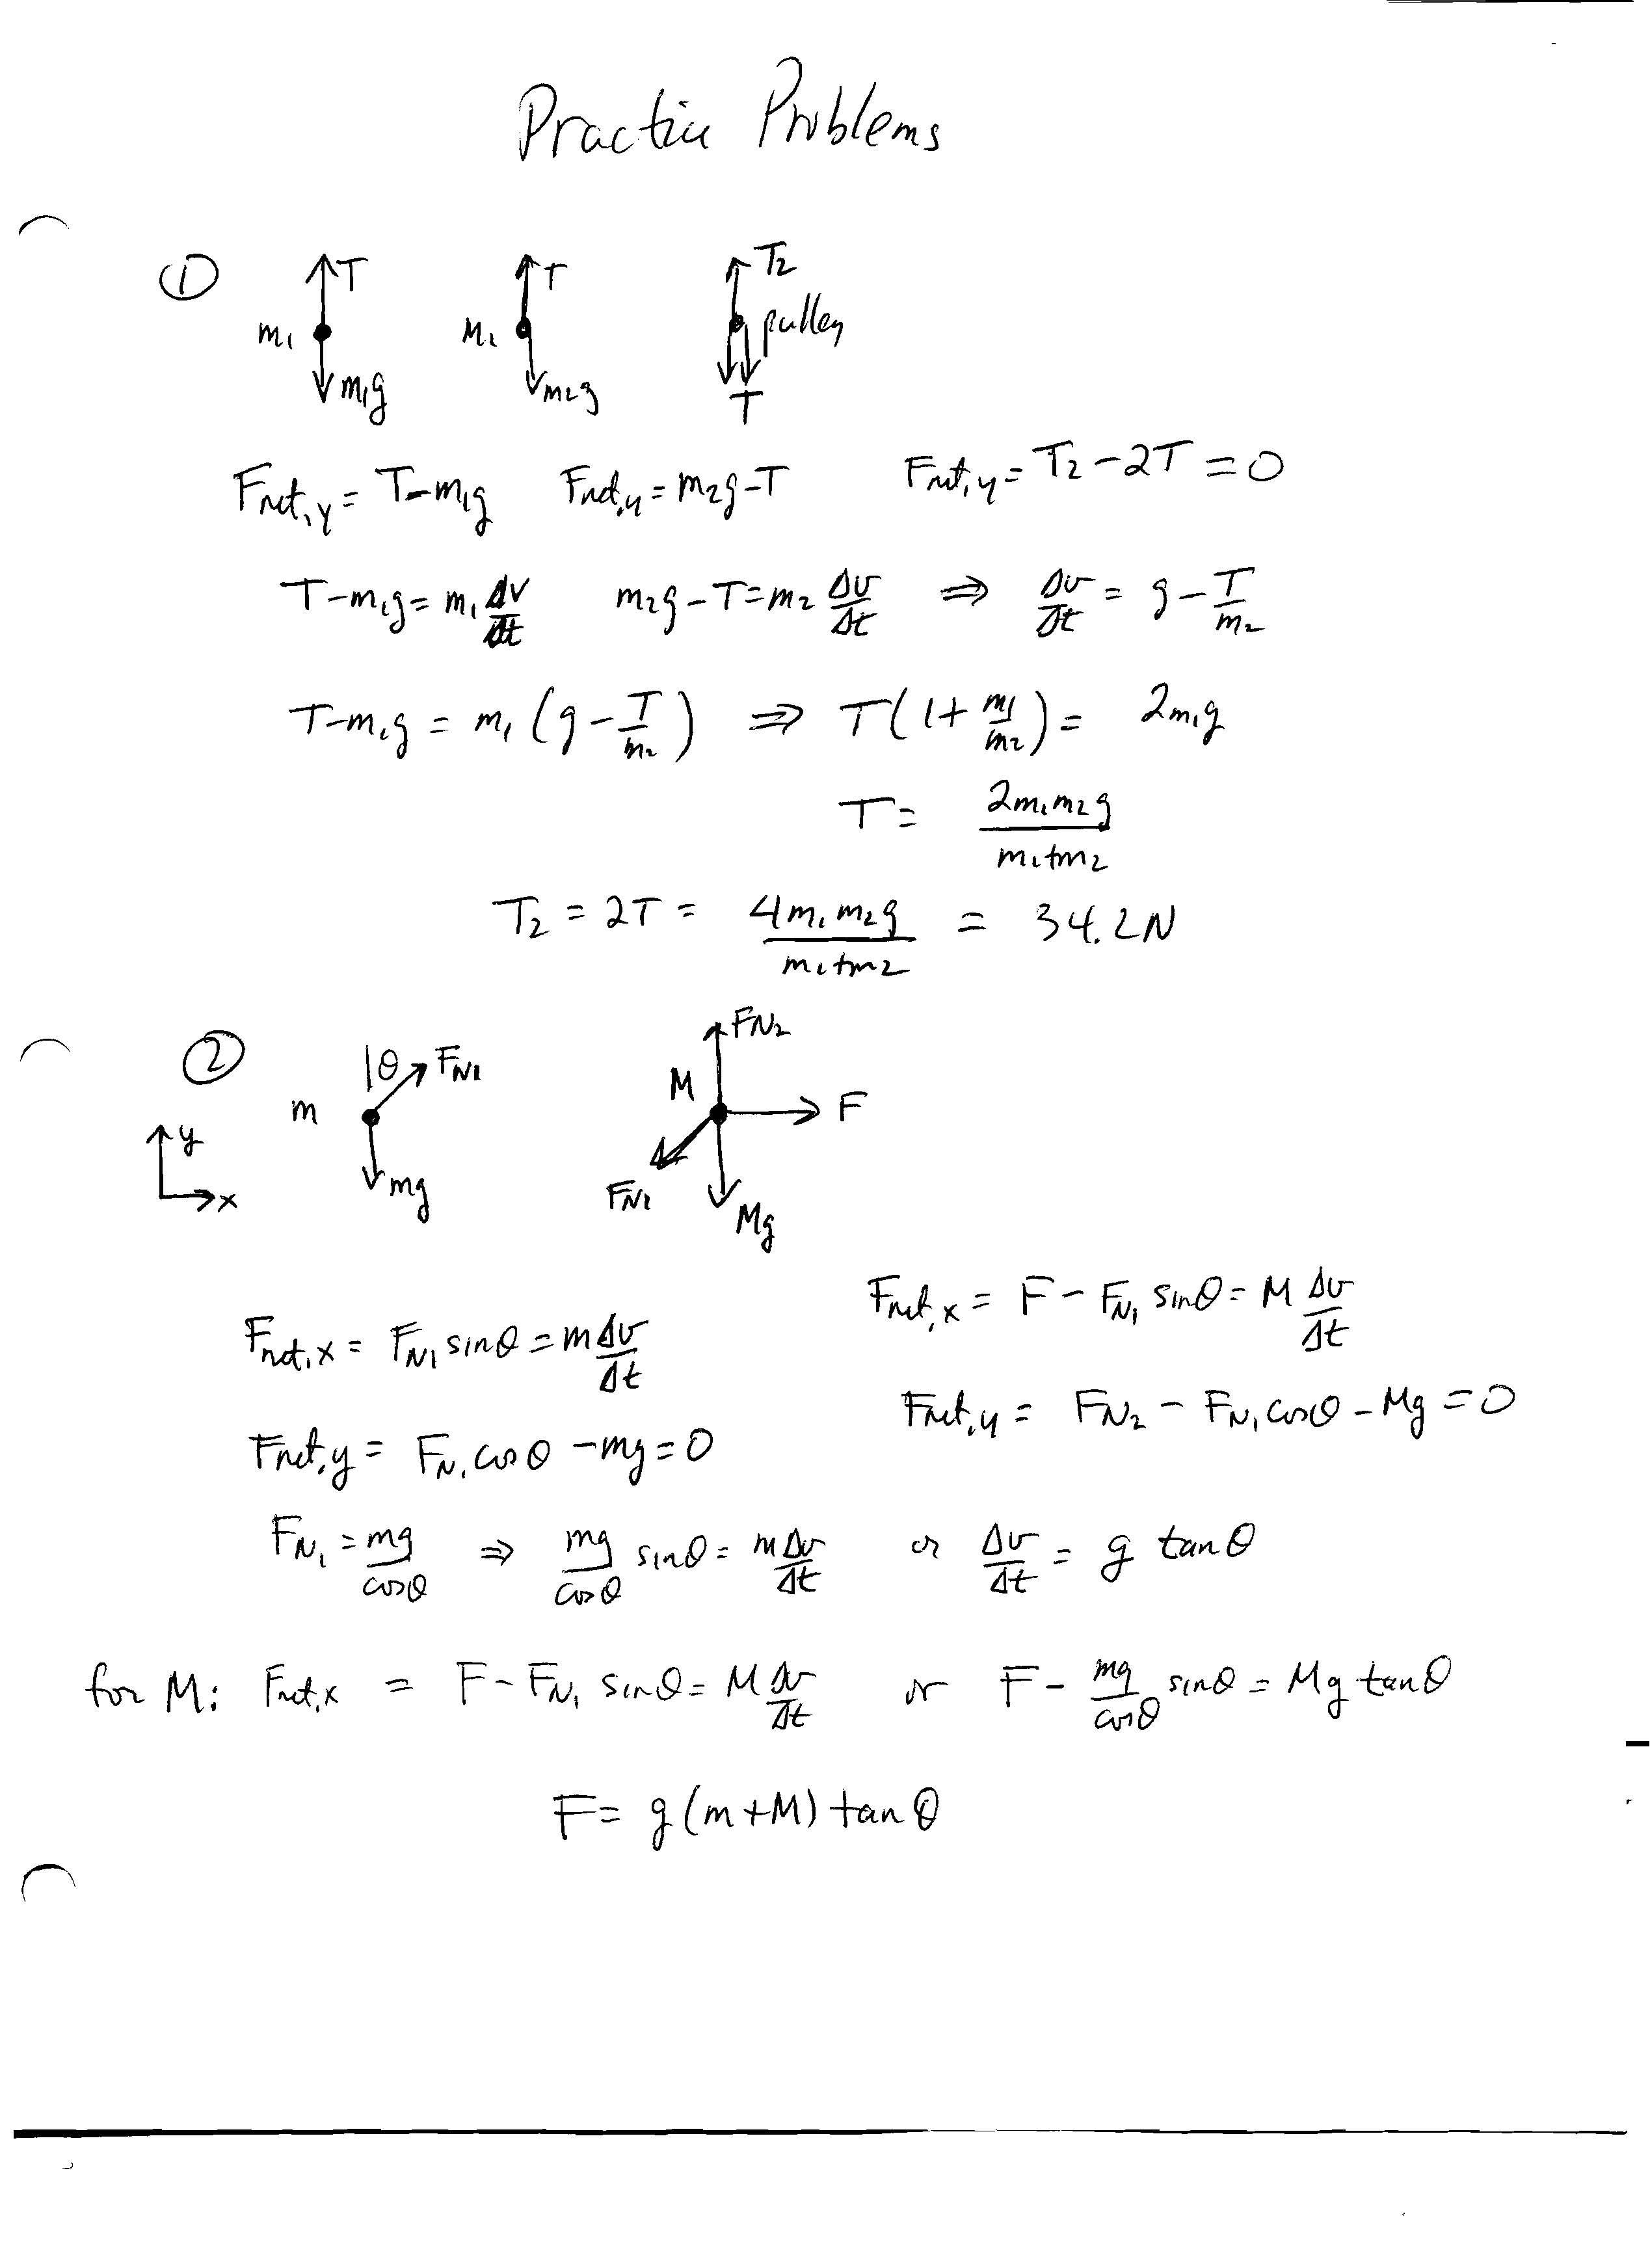 Practice Problems
① T T T2
m1 M2 pulley
m1g m2g T
Fnet,y = T-m1g Fnet,y = m2g-T Fnet,y = T2-2T = 0
T-m1g = m1 Δv/Δt m2g-T = m2 Δv/Δt ⇒ Δv/Δt = g - T/m2
T-m1g = m1 (g - T/m2) ⇒ T(1 + m1/m2) = 2m1g
T = 2m1m2g/m1+m2
T2 = 2T = 4m1m2g/m1+m2 = 34.2N
② θ FN1 FN2
m M F
y mg FN1
x Mg
Fnet,x = F - FN1 sinθ = M Δv/Δt
Fnet,x = FN1 sinθ = m Δv/Δt
Fnet,y = FN2 - FN1 cosθ - Mg = 0
Fnet,y = FN1 cosθ - mg = 0
FN1 = mg/cosθ ⇒ mg/cosθ sinθ = m Δv/Δt or Δv/Δt = g tanθ
for M: Fnet,x = F - FN1 sinθ = M Δv/Δt or F - mg/cosθ sinθ = Mg tanθ
F = g(m+M) tanθ